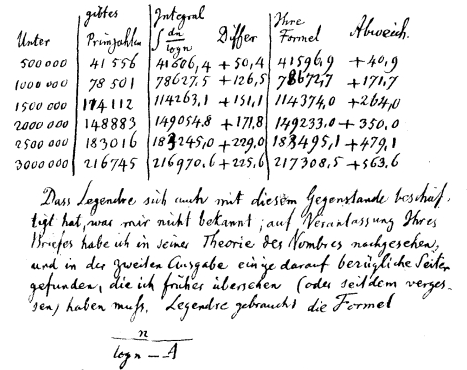 Unter | gibt es Primzahlen | Integral ∫ dn/log n | Differ | Ihre Formel | Abweich.
500000 | 41556 | 41606,4 | +50,4 | 41596,9 | +40,9
1000000 | 78501 | 78627,5 | +126,5 | 78672,7 | +171,7
1500000 | 114112 | 114263,1 | +151,1 | 114374,0 | +264,0
2000000 | 148883 | 149054,8 | +171,8 | 149233,0 | +350,0
2500000 | 183016 | 183245,0 | +229,0 | 183495,1 | +479,1
3000000 | 216745 | 216970,6 | +225,6 | 217308,5 | +563,6
Dass Legendre sich auch mit diesem Gegenstande beschäf-
tigt hat, war mir nicht bekannt; auf Veranlassung Ihres
Briefes habe ich in seiner Theorie des Nombres nachgesehen,
und in der zweiten Ausgabe einige darauf bezügliche Seiten
gefunden, die ich früher übersehen (oder seitdem verges-
sen) haben muss. Legendre gebraucht die Formel
n
log n − A